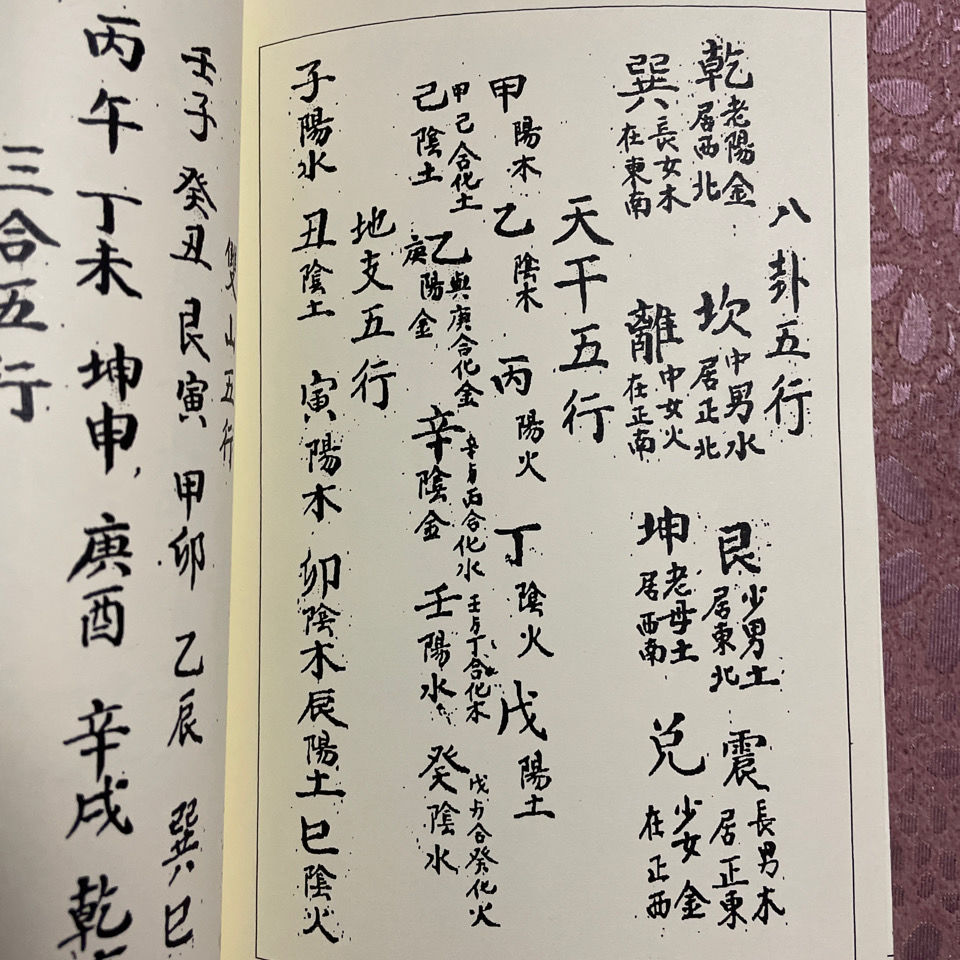 八卦五行
乾老陽金居西北 坎中男水居正北 艮少男土居東北 震長男木居正東
巽長女木在東南 離中女火在正南 坤老母土居西南 兌少女金在正西
天干五行
甲陽木 乙陰木 丙陽火 丁陰火 戊陽土
甲己合化土 乙與庚合化金 辛与丙合化水 壬与丁合化木 戊与合癸化火
己陰土 庚陽金 辛陰金 壬陽水 癸陰水
地支五行
子陽水 丑陰土 寅陽木 卯陰木 辰陽土 巳陰火
雙山五行
壬子 癸丑 艮寅 甲卯 乙辰 巽巳
丙午 丁未 坤申 庚酉 辛戌 乾
三合五行